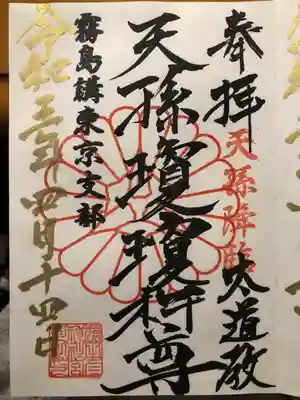 奉拝
天孫降臨
大道教
天孫瓊瓊杵尊
霧島講東京支部
令和三年四月十四日